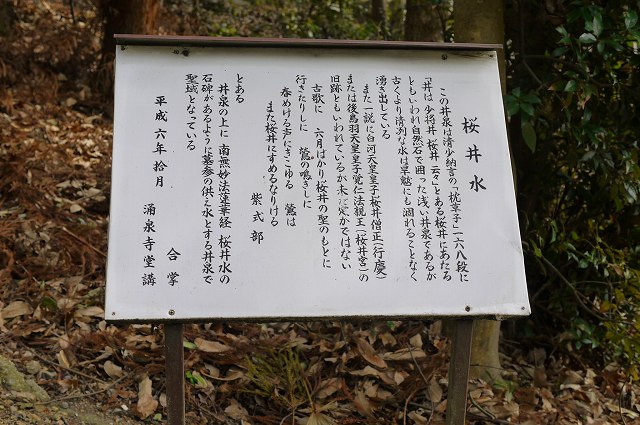 桜井水
この井泉は清少納言の「枕草子」一六八段に
「井は 少将井 桜井 云々」とある桜井にあたる
ともいわれ自然石で囲った浅い井泉であるが
古くより清冽な水は旱魃にも涸れることなく
湧き出している
また一説に白河天皇皇子桜井僧正(行慶)
または後鳥羽天皇皇子覚仁法親王(桜井宮)の
旧跡ともいわれているが未だ定かではない
古歌に 六月ばかり桜井の聖のもとに
行きたりしに 鶯の鳴きしに
春めける声にきこゆる 鶯は
まだ桜井にすめるなりける
紫式部
とある
井泉の上に 南無妙法蓮華経 桜井水の
石碑があるように墓参の供え水とする井泉で
聖域となっている
合掌
平成六年拾月 涌泉寺堂講